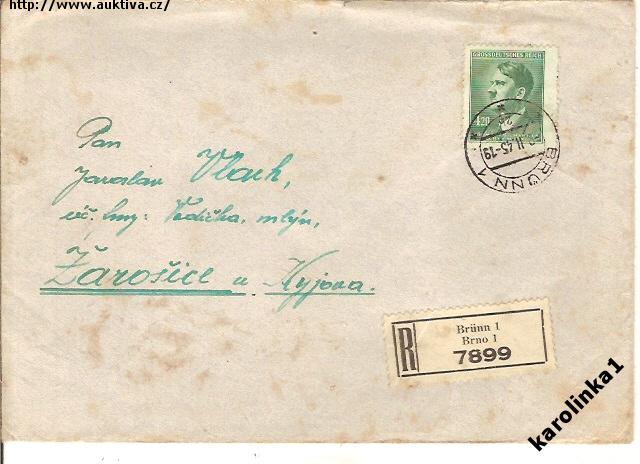 http://www.auktiva.cz/
GROSSDEUTSCHES REICH
4.20
II.45-19
BRÜNN 1
Pan
Jaroslav Vlach,
úč. fmy: Vedička, mlýn,
Žarošice u Kyjova.
R
Brünn 1
Brno 1
7899
karolinka1